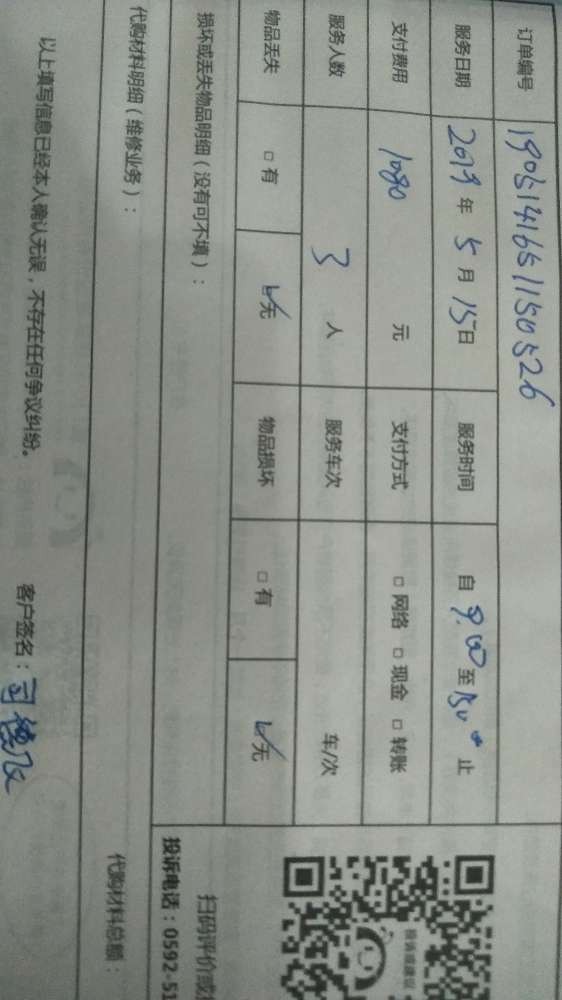 订单编号 1905141651150526
服务日期 2019年5月15日 服务时间 自 9.00 至 止
支付费用 1080 元 支付方式 □网络 □现金 □转账
服务人数 3 人 服务车次 车/次
物品丢失 □有 ☑无 物品损坏 □有 ☑无
损坏或丢失物品明细（没有可不填）：
代购材料明细（维修业务）：
代购材料总额：
以上填写信息已经本人确认无误，不存在任何争议纠纷。 客户签名：
投诉或建议
扫码评价或
投诉电话：0592-51